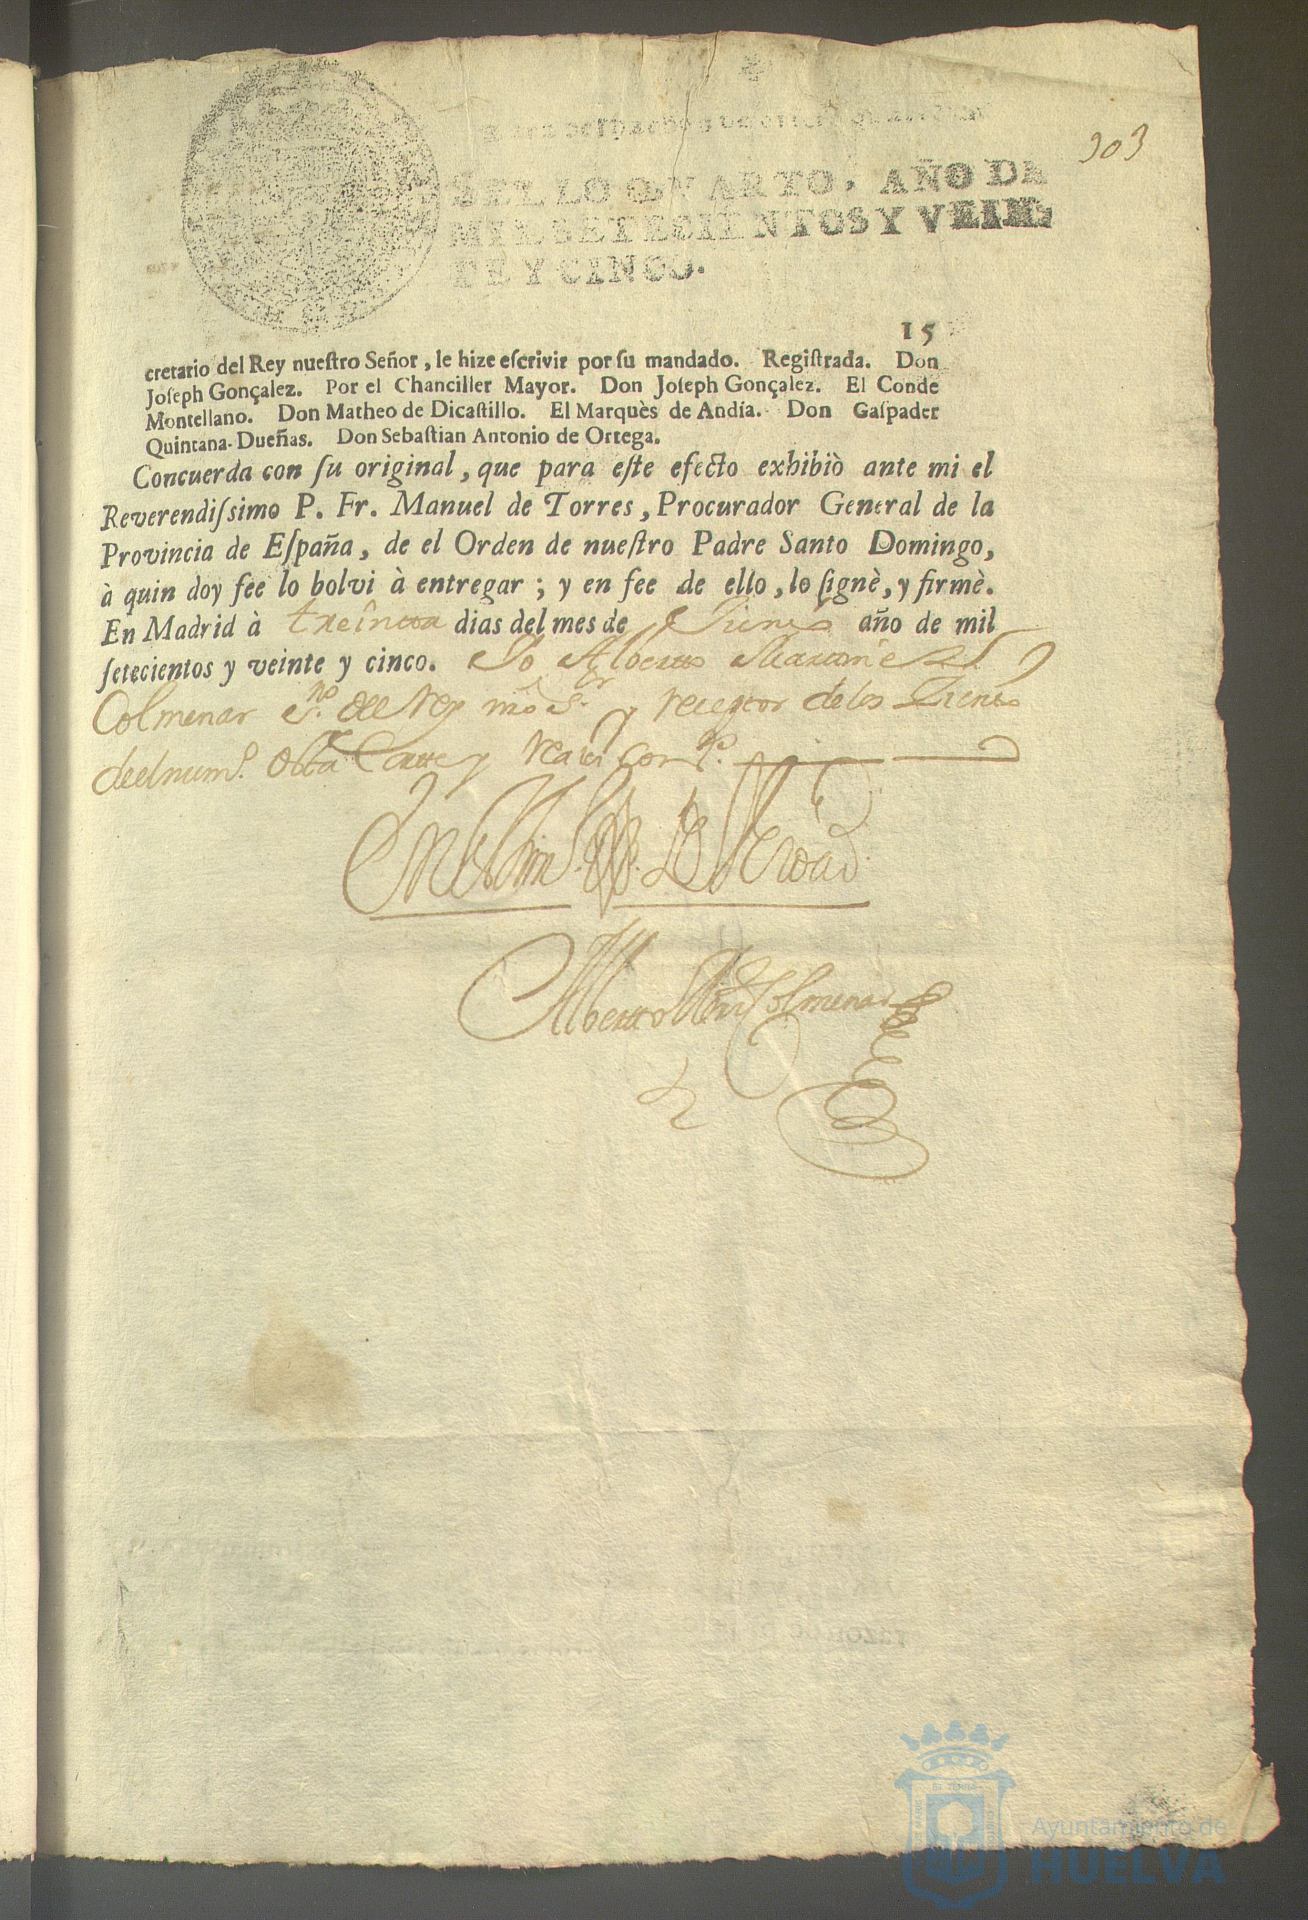 Para despachos de oficio quatro mrs.
303
SELLO QVARTO, AÑO DE
MIL SETECIENTOS Y VEIN-
TE Y CINCO.
15
cretario del Rey nueſtro Señor, le hize eſcrivir por ſu mandado. Regiſtrada. Don
Joſeph Gonçalez. Por el Chanciller Mayor. Don Joſeph Gonçalez. El Conde
Montellano. Don Matheo de Dicaſtillo. El Marquès de Andía. Don Gaſpader
Quintana-Dueñas. Don Sebaſtian Antonio de Ortega.
Concuerda con ſu original, que para eſte efecto exhibiò ante mi el
Reverendiſsimo P. Fr. Manuel de Torres, Procurador General de la
Provincia de Eſpaña, de el Orden de nueſtro Padre Santo Domingo,
à quin doy fee lo bolvi à entregar; y en fee de ello, lo ſignè, y firmè.
En Madrid à treinta dias del mes de Henero año de mil
ſetecientos y veinte y cinco. Yo Alberto Martinez
Colmenar sno. del Rey nro Sr. y receptor de los
del numo. desta Corte y
En testimo. de Verdad.
Alberto Mrnz Colmenar
Ayuntamiento de
HUELVA